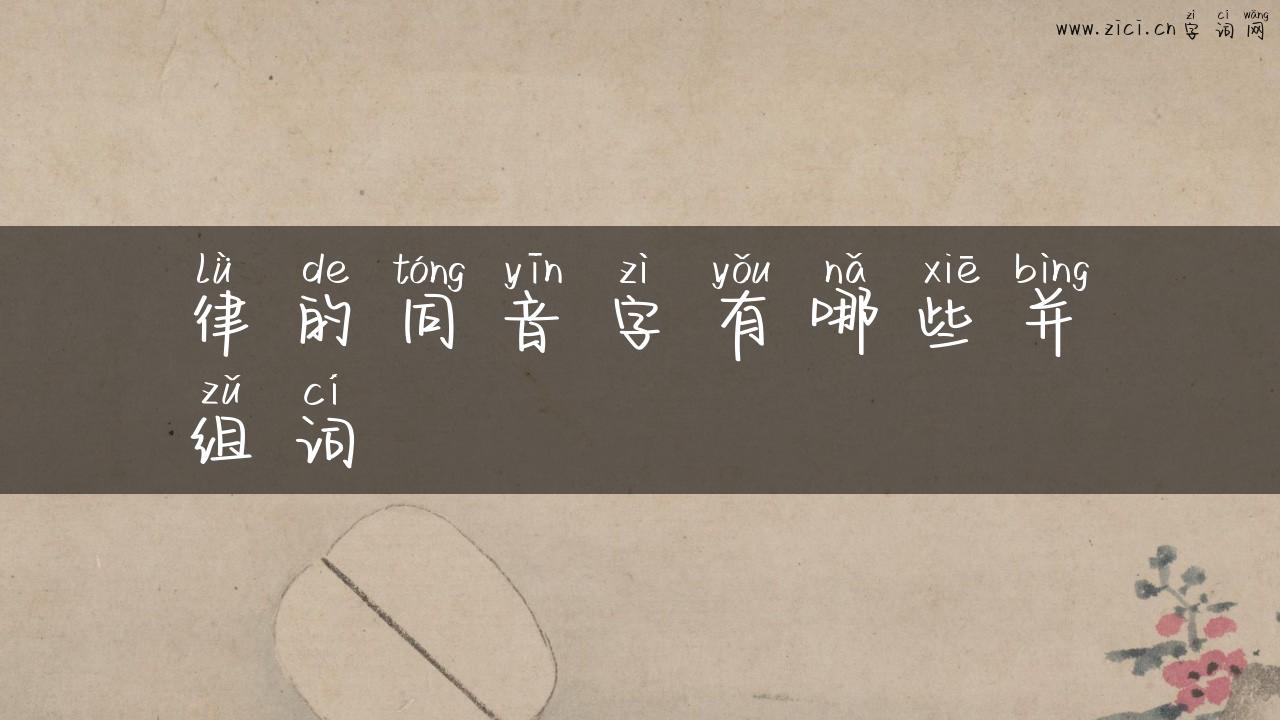 zì cí wǎng
www.zici.cn字词网
lǜ de tóng yīn zì yǒu nǎ xiē bìng
律的同音字有哪些并
zǔ cí
组词